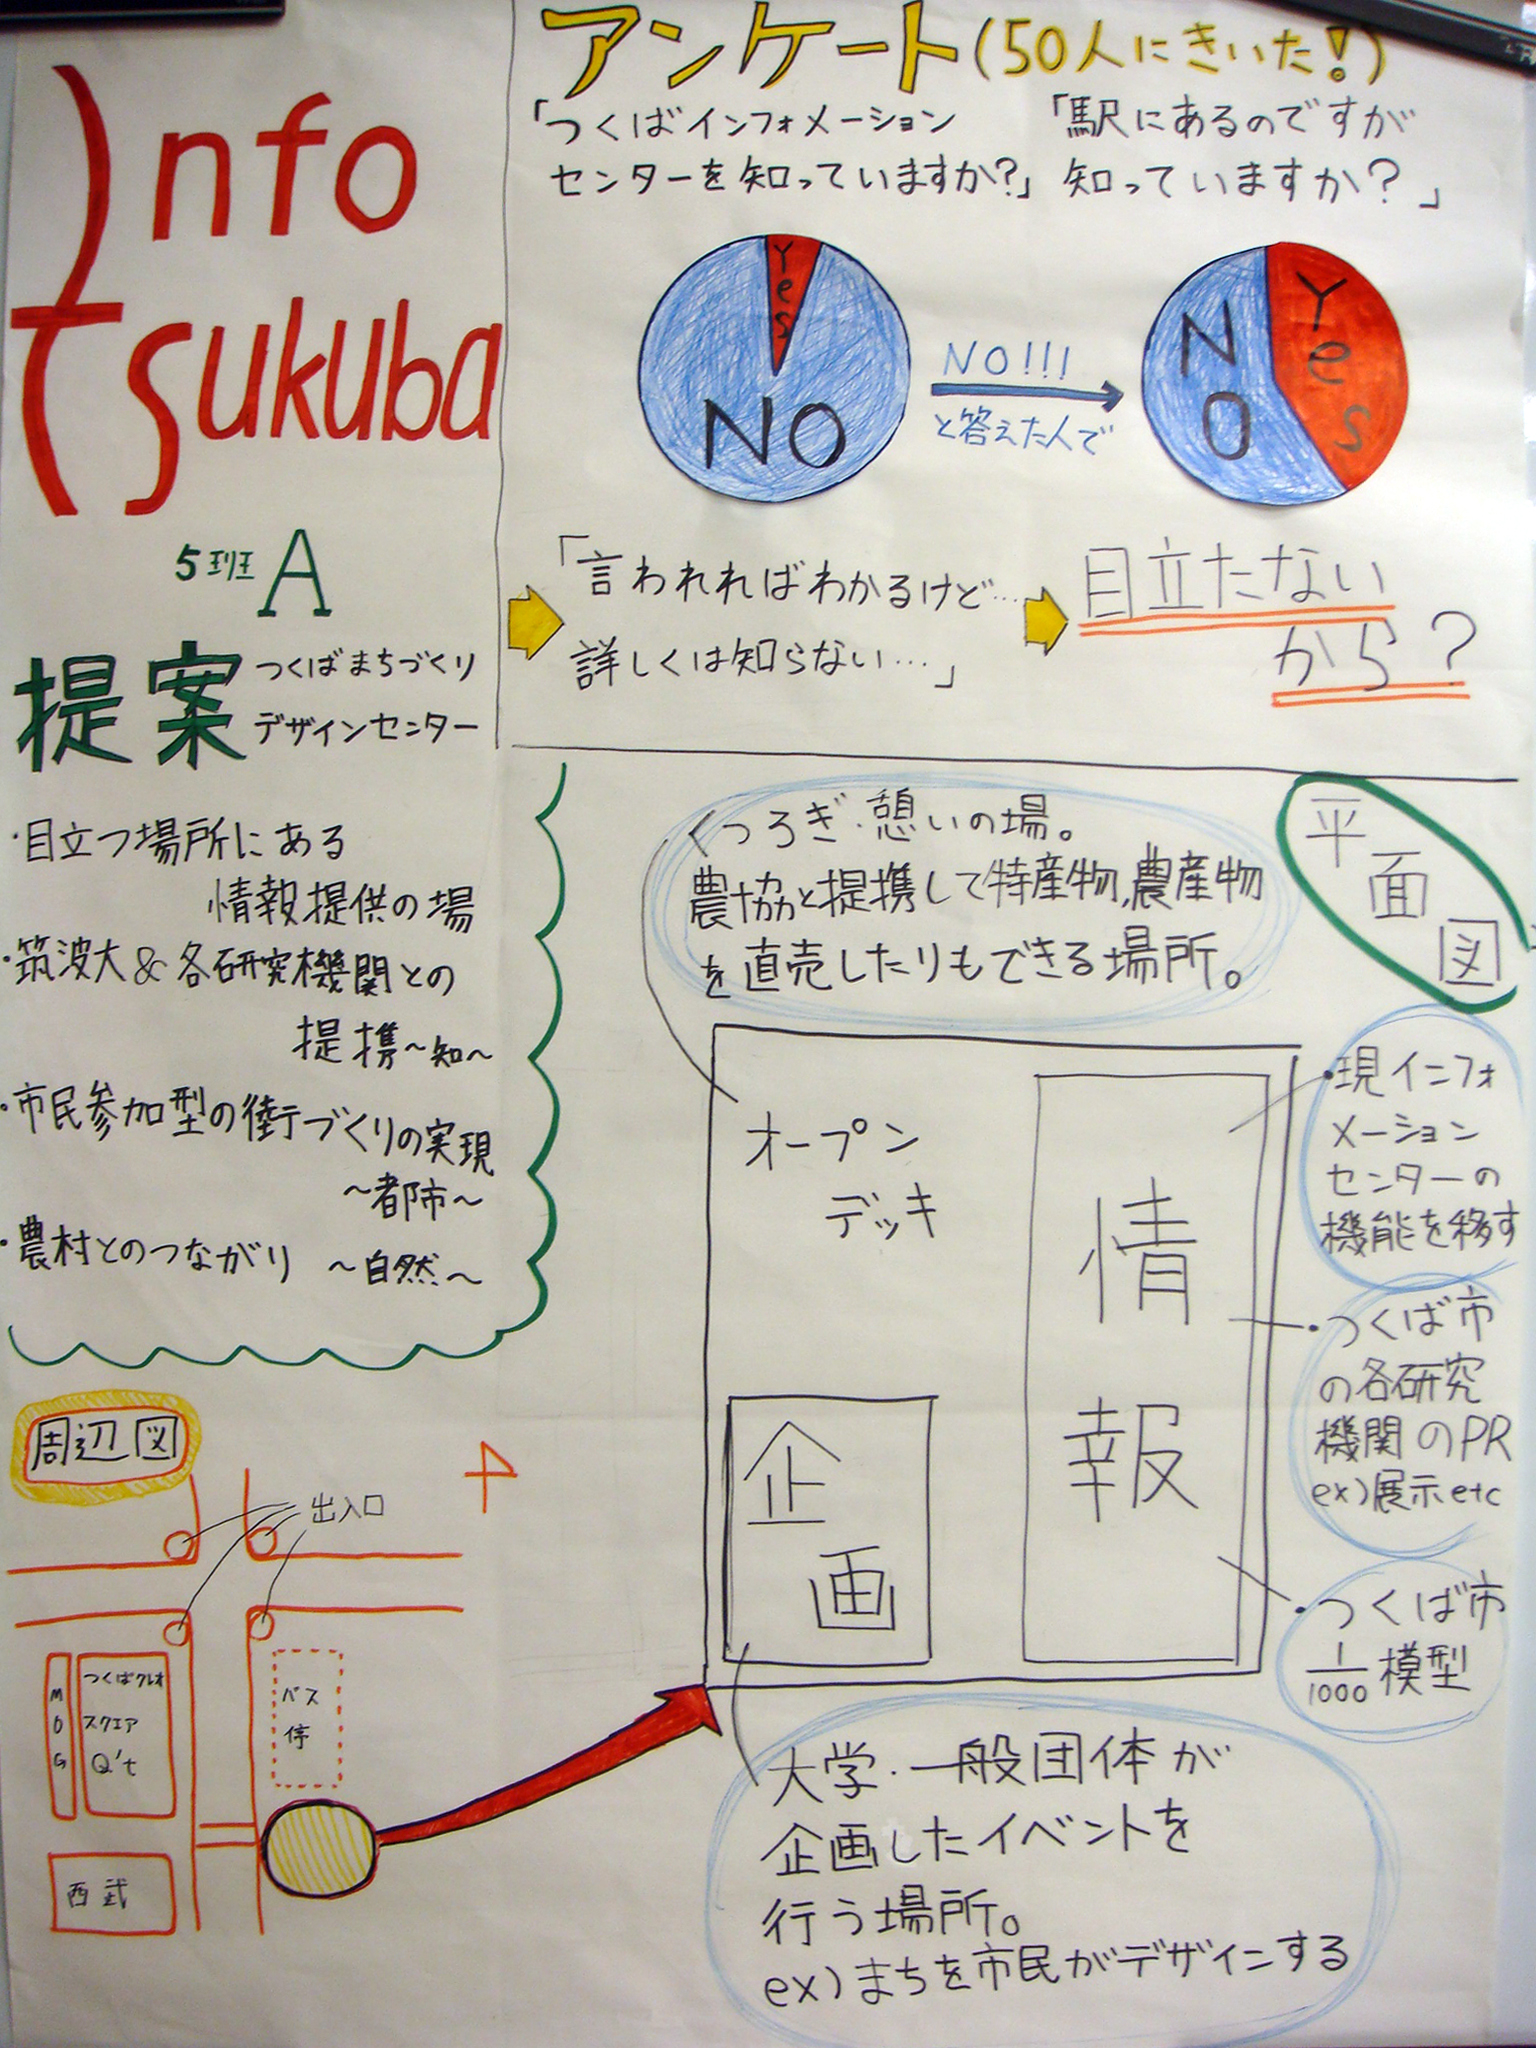 Info
Tsukuba
5班 A
提案 つくばまちづくり
デザインセンター
・目立つ場所にある
情報提供の場
・筑波大&各研究機関との
提携～知～
・市民参加型の街づくりの実現
～都市～
・農村とのつながり ～自然～
アンケート(50人にきいた!)
「つくばインフォメーション
センターを知っていますか?」
「駅にあるのですが
知っていますか?」
Yes
NO
NO!!!
と答えた人で
NO
Yes
「言われればわかるけど…
詳しくは知らない…」
目立たない
から?
平面図
くつろぎ・憩いの場。
農協と提携して特産物,農産物
を直売したりもできる場所。
オープン
デッキ
情報
企画
・現インフォ
メーション
センターの
機能を移す
・つくば市
の各研究
機関のPR
ex)展示etc
・つくば市
1/1000 模型
大学・一般団体が
企画したイベントを
行う場所。
ex)まちを市民がデザインする
周辺図
出入口
MOG
つくばクレオ
スクエア
Q't
バス
停
西武